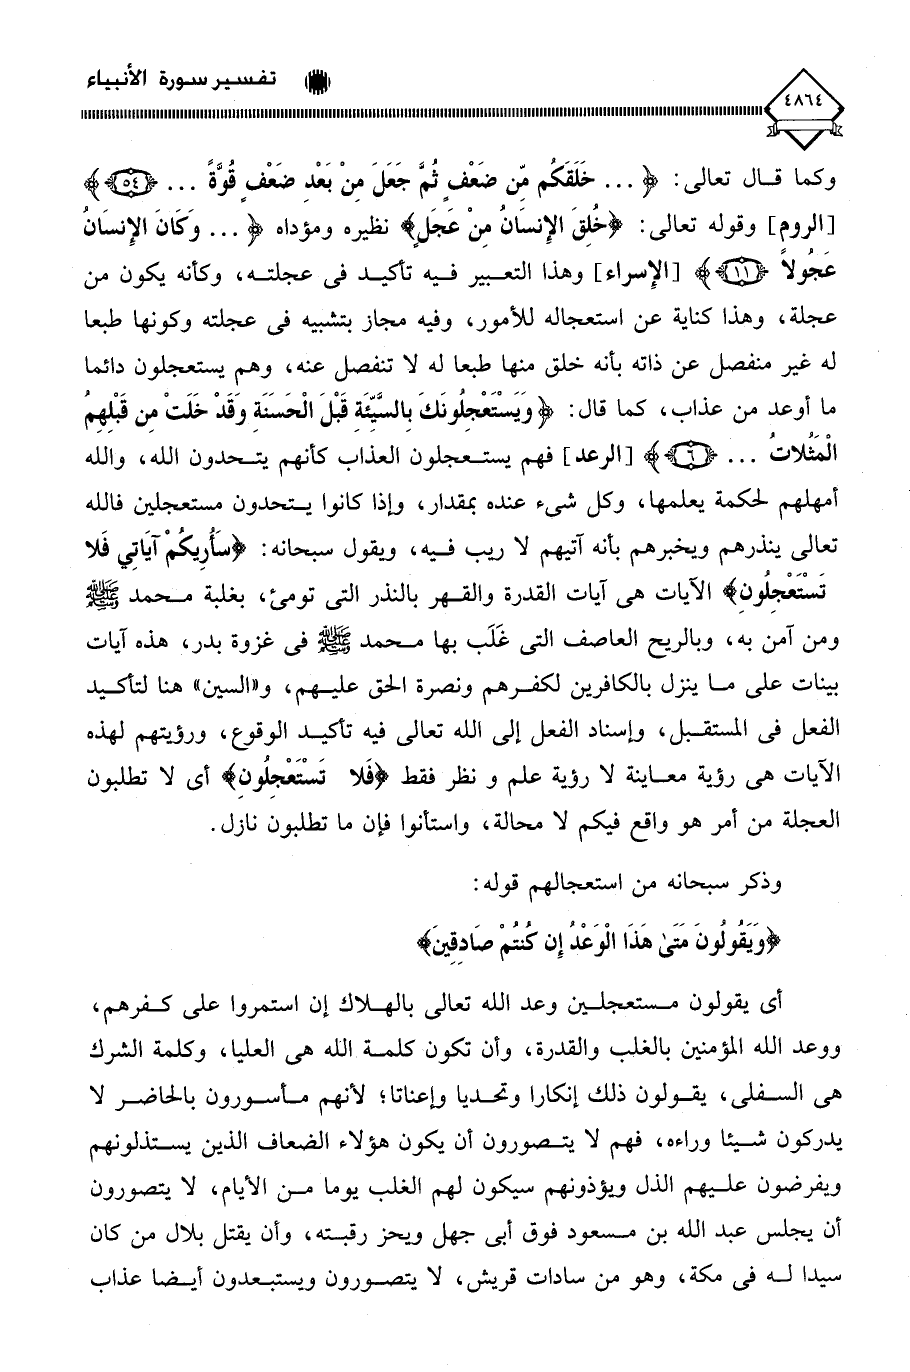 تفسير سورة الأنبياء
٤٨٦٤
وكما قال تعالى: ﴿ ... خَلَقَكُم مِّن ضَعْفٍ ثُمَّ جَعَلَ مِنْ بَعْدِ ضَعْفٍ قُوَّةً ... ﴿٥٤﴾﴾
[الروم] وقوله تعالى: ﴿خُلِقَ الإِنسَانُ مِنْ عَجَلٍ﴾ نظيره ومؤداه ﴿ ... وَكَانَ الإِنسَانُ
عَجُولاً ﴿١١﴾﴾ [الإسراء] وهذا التعبير فيه تأكيد فى عجلته، وكأنه يكون من
عجلة، وهذا كناية عن استعجاله للأمور، وفيه مجاز بتشبيه فى عجلته وكونها طبعا
له غير منفصل عن ذاته بأنه خلق منها طبعا له لا تنفصل عنه، وهم يستعجلون دائما
ما أوعد من عذاب، كما قال: ﴿وَيَسْتَعْجِلُونَكَ بِالسَّيِّئَةِ قَبْلَ الْحَسَنَةِ وَقَدْ خَلَتْ مِن قَبْلِهِمُ
الْمَثُلاتُ ... ﴿٦﴾﴾ [الرعد] فهم يستعجلون العذاب كأنهم يتحدون الله، والله
أمهلهم لحكمة يعلمها، وكل شىء عنده بمقدار، وإذا كانوا يتحدون مستعجلين فالله
تعالى ينذرهم ويخبرهم بأنه آتيهم لا ريب فيه، ويقول سبحانه: ﴿سَأُرِيكُمْ آيَاتِي فَلا
تَسْتَعْجِلُونِ﴾ الآيات هى آيات القدرة والقهر بالنذر التى تومئ، بغلبة محمد ﷺ
ومن آمن به، وبالريح العاصف التى غَلَب بها محمد ﷺ فى غزوة بدر، هذه آيات
بينات على ما ينزل بالكافرين لكفرهم ونصرة الحق عليهم، و«السين» هنا لتأكيد
الفعل فى المستقبل، وإسناد الفعل إلى الله تعالى فيه تأكيد الوقوع، ورؤيتهم لهذه
الآيات هى رؤية معاينة لا رؤية علم و نظر فقط ﴿فَلا تَسْتَعْجِلُونِ﴾ أى لا تطلبون
العجلة من أمر هو واقع فيكم لا محالة، واستأنوا فإن ما تطلبون نازل.
وذكر سبحانه من استعجالهم قوله:
﴿وَيَقُولُونَ مَتَىٰ هَذَا الْوَعْدُ إِن كُنتُمْ صَادِقِينَ﴾
أى يقولون مستعجلين وعد الله تعالى بالهلاك إن استمروا على كفرهم،
ووعد الله المؤمنين بالغلب والقدرة، وأن تكون كلمة الله هى العليا، وكلمة الشرك
هى السفلى، يقولون ذلك إنكارا وتحديا وإعناتا؛ لأنهم مأسورون بالحاضر لا
يدركون شيئا وراءه، فهم لا يتصورون أن يكون هؤلاء الضعاف الذين يستذلونهم
ويفرضون عليهم الذل ويؤذونهم سيكون لهم الغلب يوما من الأيام، لا يتصورون
أن يجلس عبد الله بن مسعود فوق أبى جهل ويحز رقبته، وأن يقتل بلال من كان
سيدا له فى مكة، وهو من سادات قريش، لا يتصورون ويستبعدون أيضا عذاب